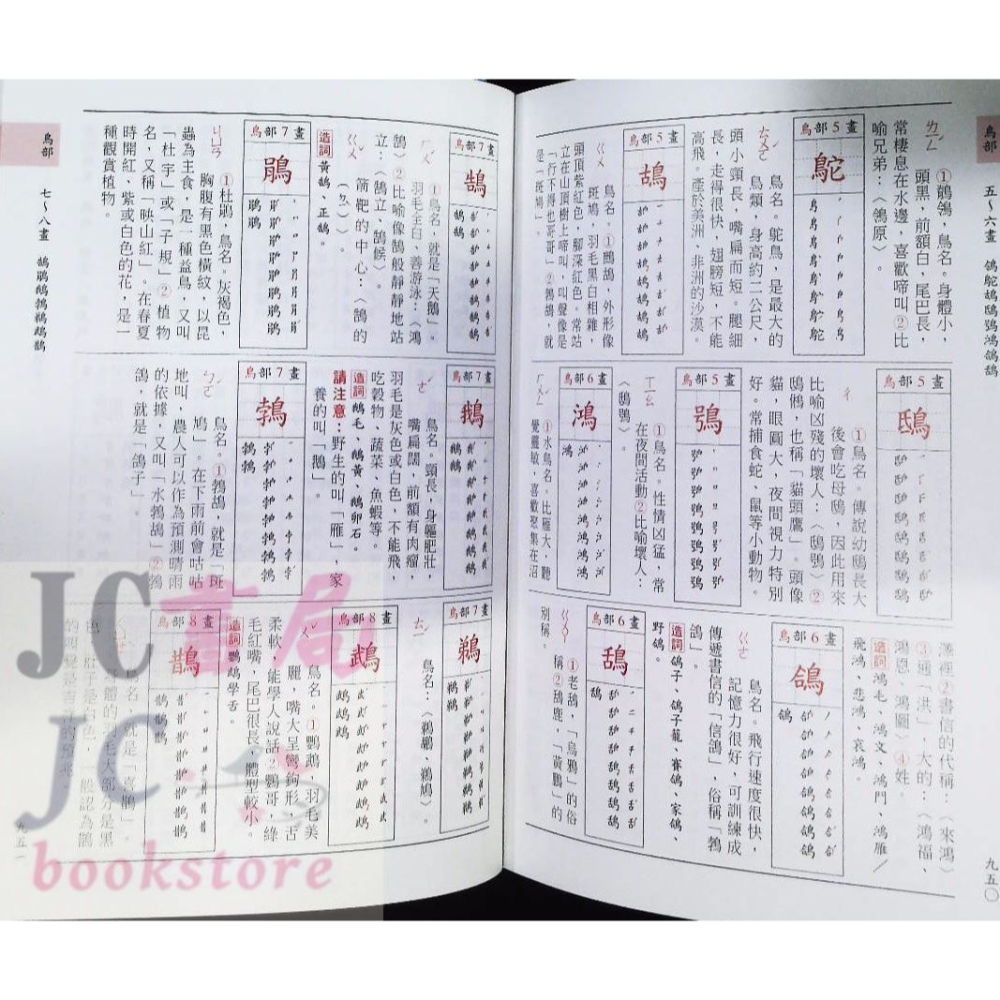 鳥部
五～六畫
九五〇
ㄌㄧㄥ
①鶺鴒，鳥名。身體小，
頭黑，前額白，尾巴長，
常棲息在水邊，喜歡啼叫②比
喻兄弟：〈鴒原〉。
鳥部5畫
鴕
ㄊㄨㄛ
鳥名。鴕鳥，是最大的
鳥類，身高約二公尺，
頭小頸長，嘴扁而短。腿細
長，走得很快，翅膀短，不能
高飛。產於美洲、非洲的沙漠。
鳥部5畫
鴣
ㄍㄨ
①鷓鴣，外形像
斑鳩，羽毛黑白相雜，
頭頂紫紅色，腳深紅色。常站
立在山頂樹上啼叫，叫聲像是
「行不得也哥哥」②鵓鴣，就
是「斑鳩」。
鳥部5畫
鴟
ㄔ
①鳥名。傳說幼鴟長大
後會吃母鴟，因此用來
比喻凶殘的壞人：〈鴟鴞〉②
鴟鵂，也稱「貓頭鷹」。頭像
貓，眼圓大，夜間視力特別
好。常捕食蛇、鼠等小動物。
鳥部5畫
鴞
ㄒㄧㄠ
①鳥名。性情凶猛，常
在夜間活動②比喻壞人：
〈鴟鴞〉。
鳥部6畫
鴻
ㄏㄨㄥˊ
①水鳥名。比雁大，聽
覺靈敏，喜歡聚集在沼
澤裡②書信的代稱：〈來鴻〉
③通「洪」，大的：〈鴻福、
鴻恩、鴻圖〉④姓。
造詞 鴻毛、鴻文、鴻門、鴻雁／
飛鴻、悲鴻、哀鴻。
鳥部6畫
鴿
ㄍㄜ
鳥名。飛行速度很快，
記憶力很好，可訓練成
傳遞書信的「信鴿」，俗稱「鵓
鴿」。
造詞 鴿子、鴿子籠、賽鴿、家鴿、
野鴿。
鳥部6畫
鴰
ㄍㄨㄚ
①老鴰，「烏鴉」的俗
稱②鴰鹿，「黃鸝」的
別稱。
鳥部7畫
鵠
ㄏㄨˊ
①鳥名，就是「天鵝」。
羽毛全白，善游泳：〈鴻
鵠〉②比喻像鵠般靜靜地站
立：〈鵠立、鵠候〉
ㄍㄨˇ
箭靶的中心：〈鵠的
（ㄉㄧˋ）〉。
造詞 黃鵠、正鵠。
鳥部7畫
鵑
ㄐㄩㄢ
①杜鵑，鳥名。灰褐色，
胸腹有黑色橫紋，以昆
蟲為主食，是一種益鳥，又叫
「杜宇」或「子規」②植物
名，又稱「映山紅」。在春夏
時開紅、紫或白色的花，是一
種觀賞植物。
鳥部7畫
鵝
ㄜˊ
鳥名。頸長，身軀肥壯，
嘴扁闊，前額有肉瘤，
羽毛是灰色或白色，不能飛，
吃穀物、蔬菜、魚蝦等。
造詞 鵝毛、鵝黃、鵝卵石。
請注意：野生的叫「雁」，家
養的叫「鵝」。
鳥部7畫
鵓
ㄅㄛˊ
鳥名。①鵓鴣，就是「斑
鳩」。在下雨前會咕咕
地叫，農人可以作為預測晴雨
的依據，又叫「水鵓鴣」②鵓
鴿，就是「鴿子」。
鳥部7畫
鵜
ㄊㄧˊ
鳥名：〈鵜鶘、鵜鴂〉。
鳥部8畫
鵡
ㄨˇ
鳥名。①鸚鵡，羽毛美
麗，嘴大呈彎鉤形，舌
柔軟，能學人說話②鸚哥，綠
毛紅嘴，尾巴很長，體型較小。
造詞 鸚鵡學舌。
鳥部8畫
鵲
鳥名，就是「喜鵲」。
鳥部
七～八畫
鵠鵑鵝鵓鵜鵡鵲
九五一
JC書局
JC
bookstore